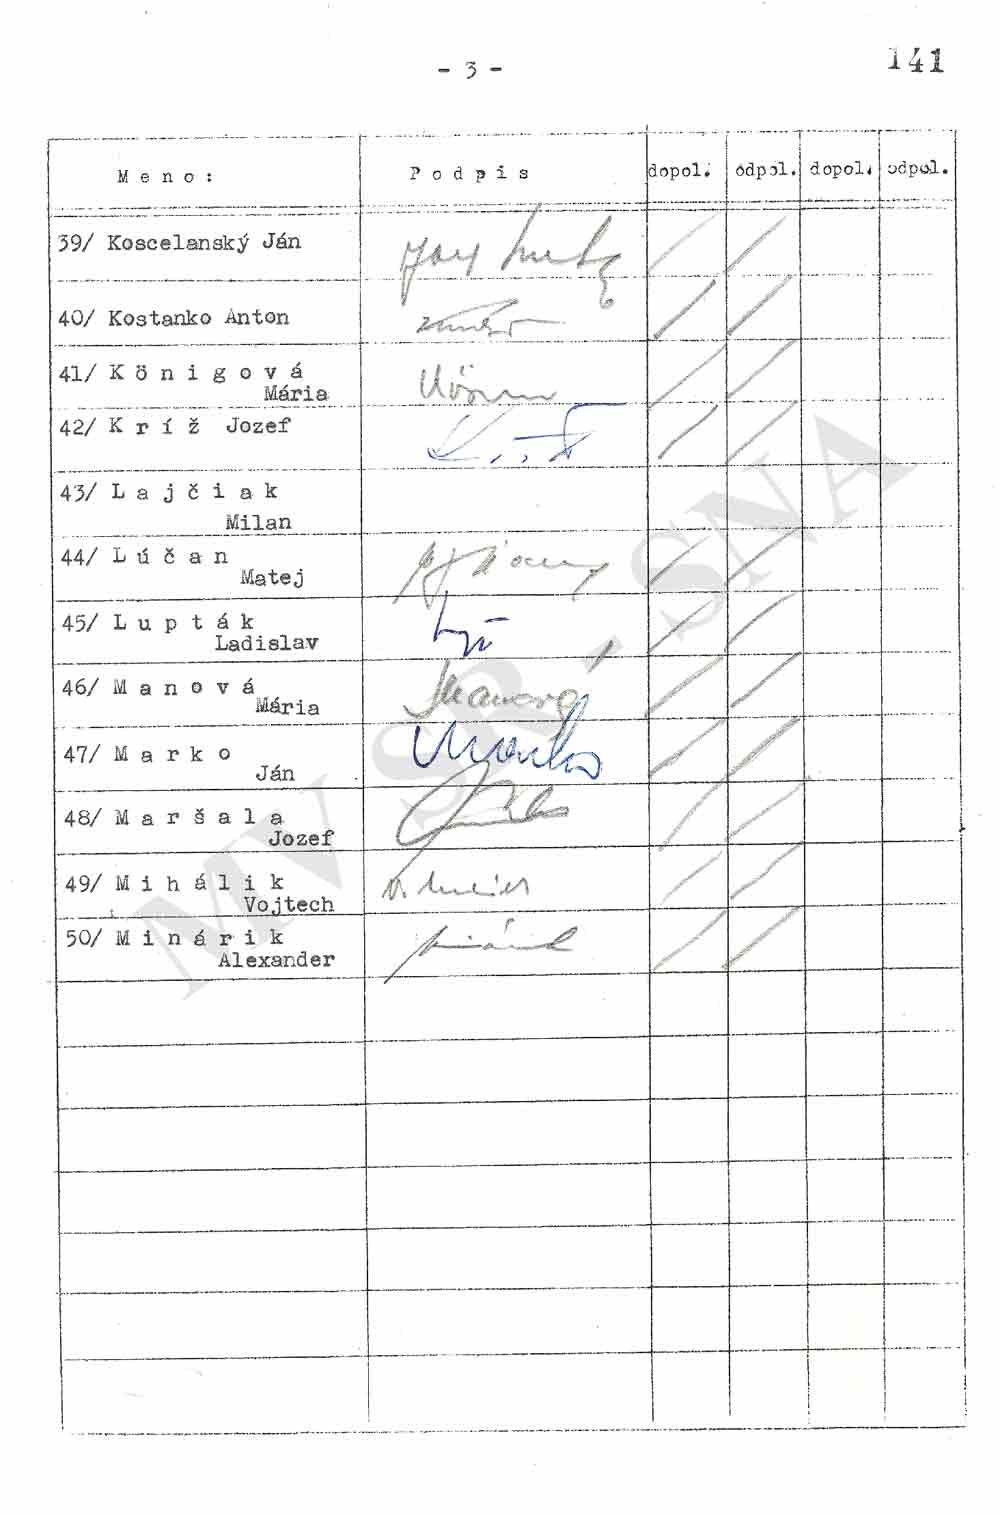 - 3 -
141
Meno: Podpis dopol. odpol. dopol. odpol.
39/ Koscelanský Ján
40/ Kostanko Anton
41/ Königová
Mária
42/ Kríž Jozef
43/ Lajčiak
Milan
44/ Lúčan
Matej
45/ Lupták
Ladislav
46/ Manová
Mária
Manová
47/ Marko
Ján
Marko
48/ Maršala
Jozef
49/ Mihálik
Vojtech
50/ Minárik
Alexander
MV SR - SNA